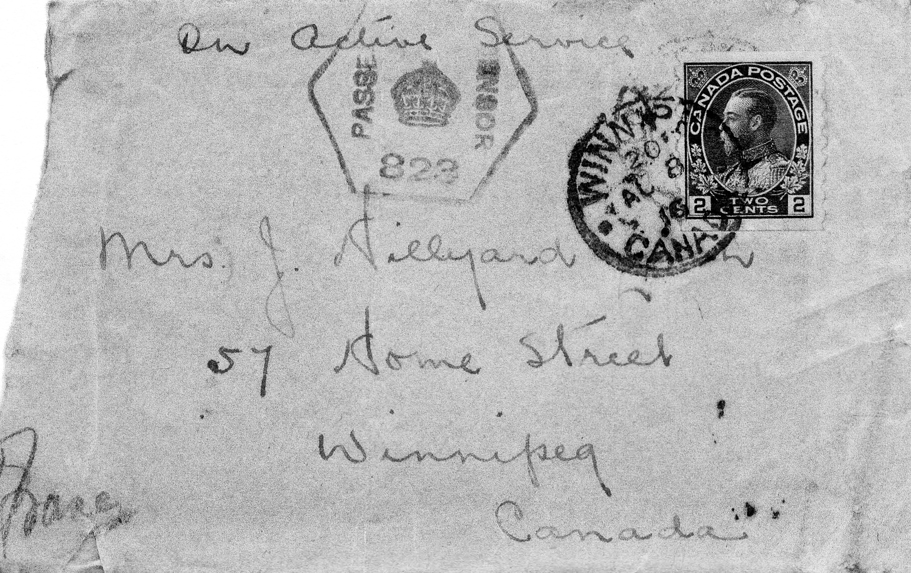 On Active Service
PASSE ENSOR
823
CANADA POSTAGE
2 TWO CENTS 2
WINNIP
20
AU 8
16
CANADA
Mrs. J. Hillyard
57 Home Street
Winnipeg
Canada